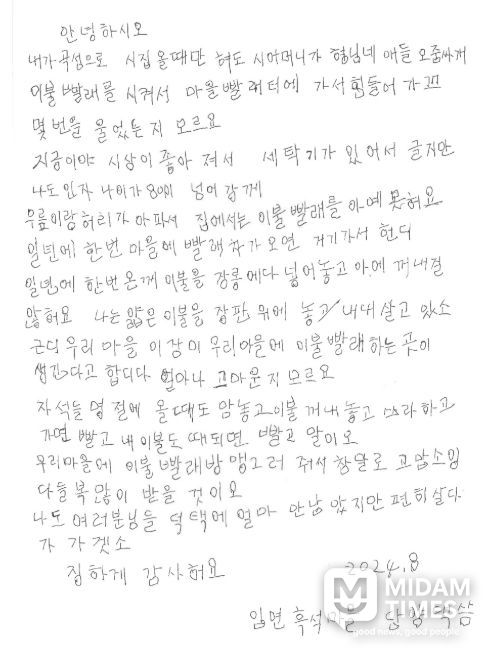 안녕하시오
내가곡성으로 시집올때만 혀도 시어머니가 형님네 애들 오줌싸개
이불빨래를 시켜서 마을빨래터에 가서힘들어 가꼬
몇번을 울었는지 모르요
지금이야 시상이좋아 져서 세탁기가 있어서 글지만
나도인자 나이가80이 넘어강께
무릎이랑허리가아파서 집에서는 이불빨래를아예못혀요
일년에한번마을에빨래차가오면 거기가서 헌디
일년에한번온께이불을장롱에다넣어놓고아에 꺼내질
않혀요 나는얇은이불을장판위에 놓고 내내살고있소
근디우리 마을 이장이우리마을에 이불빨래하는곳이
생긴다고 합디다 얼마나고마운지므르요
자석들명절에 올때도 맘놓고이불꺼내놓고 쓰라하고
가면 빨고 내이불도때되면 빨고 말이오
우리마을에 이불빨래방맹그러 줘서 참말로고맙소잉
다들복많이 받을 것이오
나도여러분님들 덕택에얼마 안남았지만 편히살다
가 가겟소
짐하게 감사혀요 2024.8
입면 흑석마을
MIDAM TIMES
good news, good people